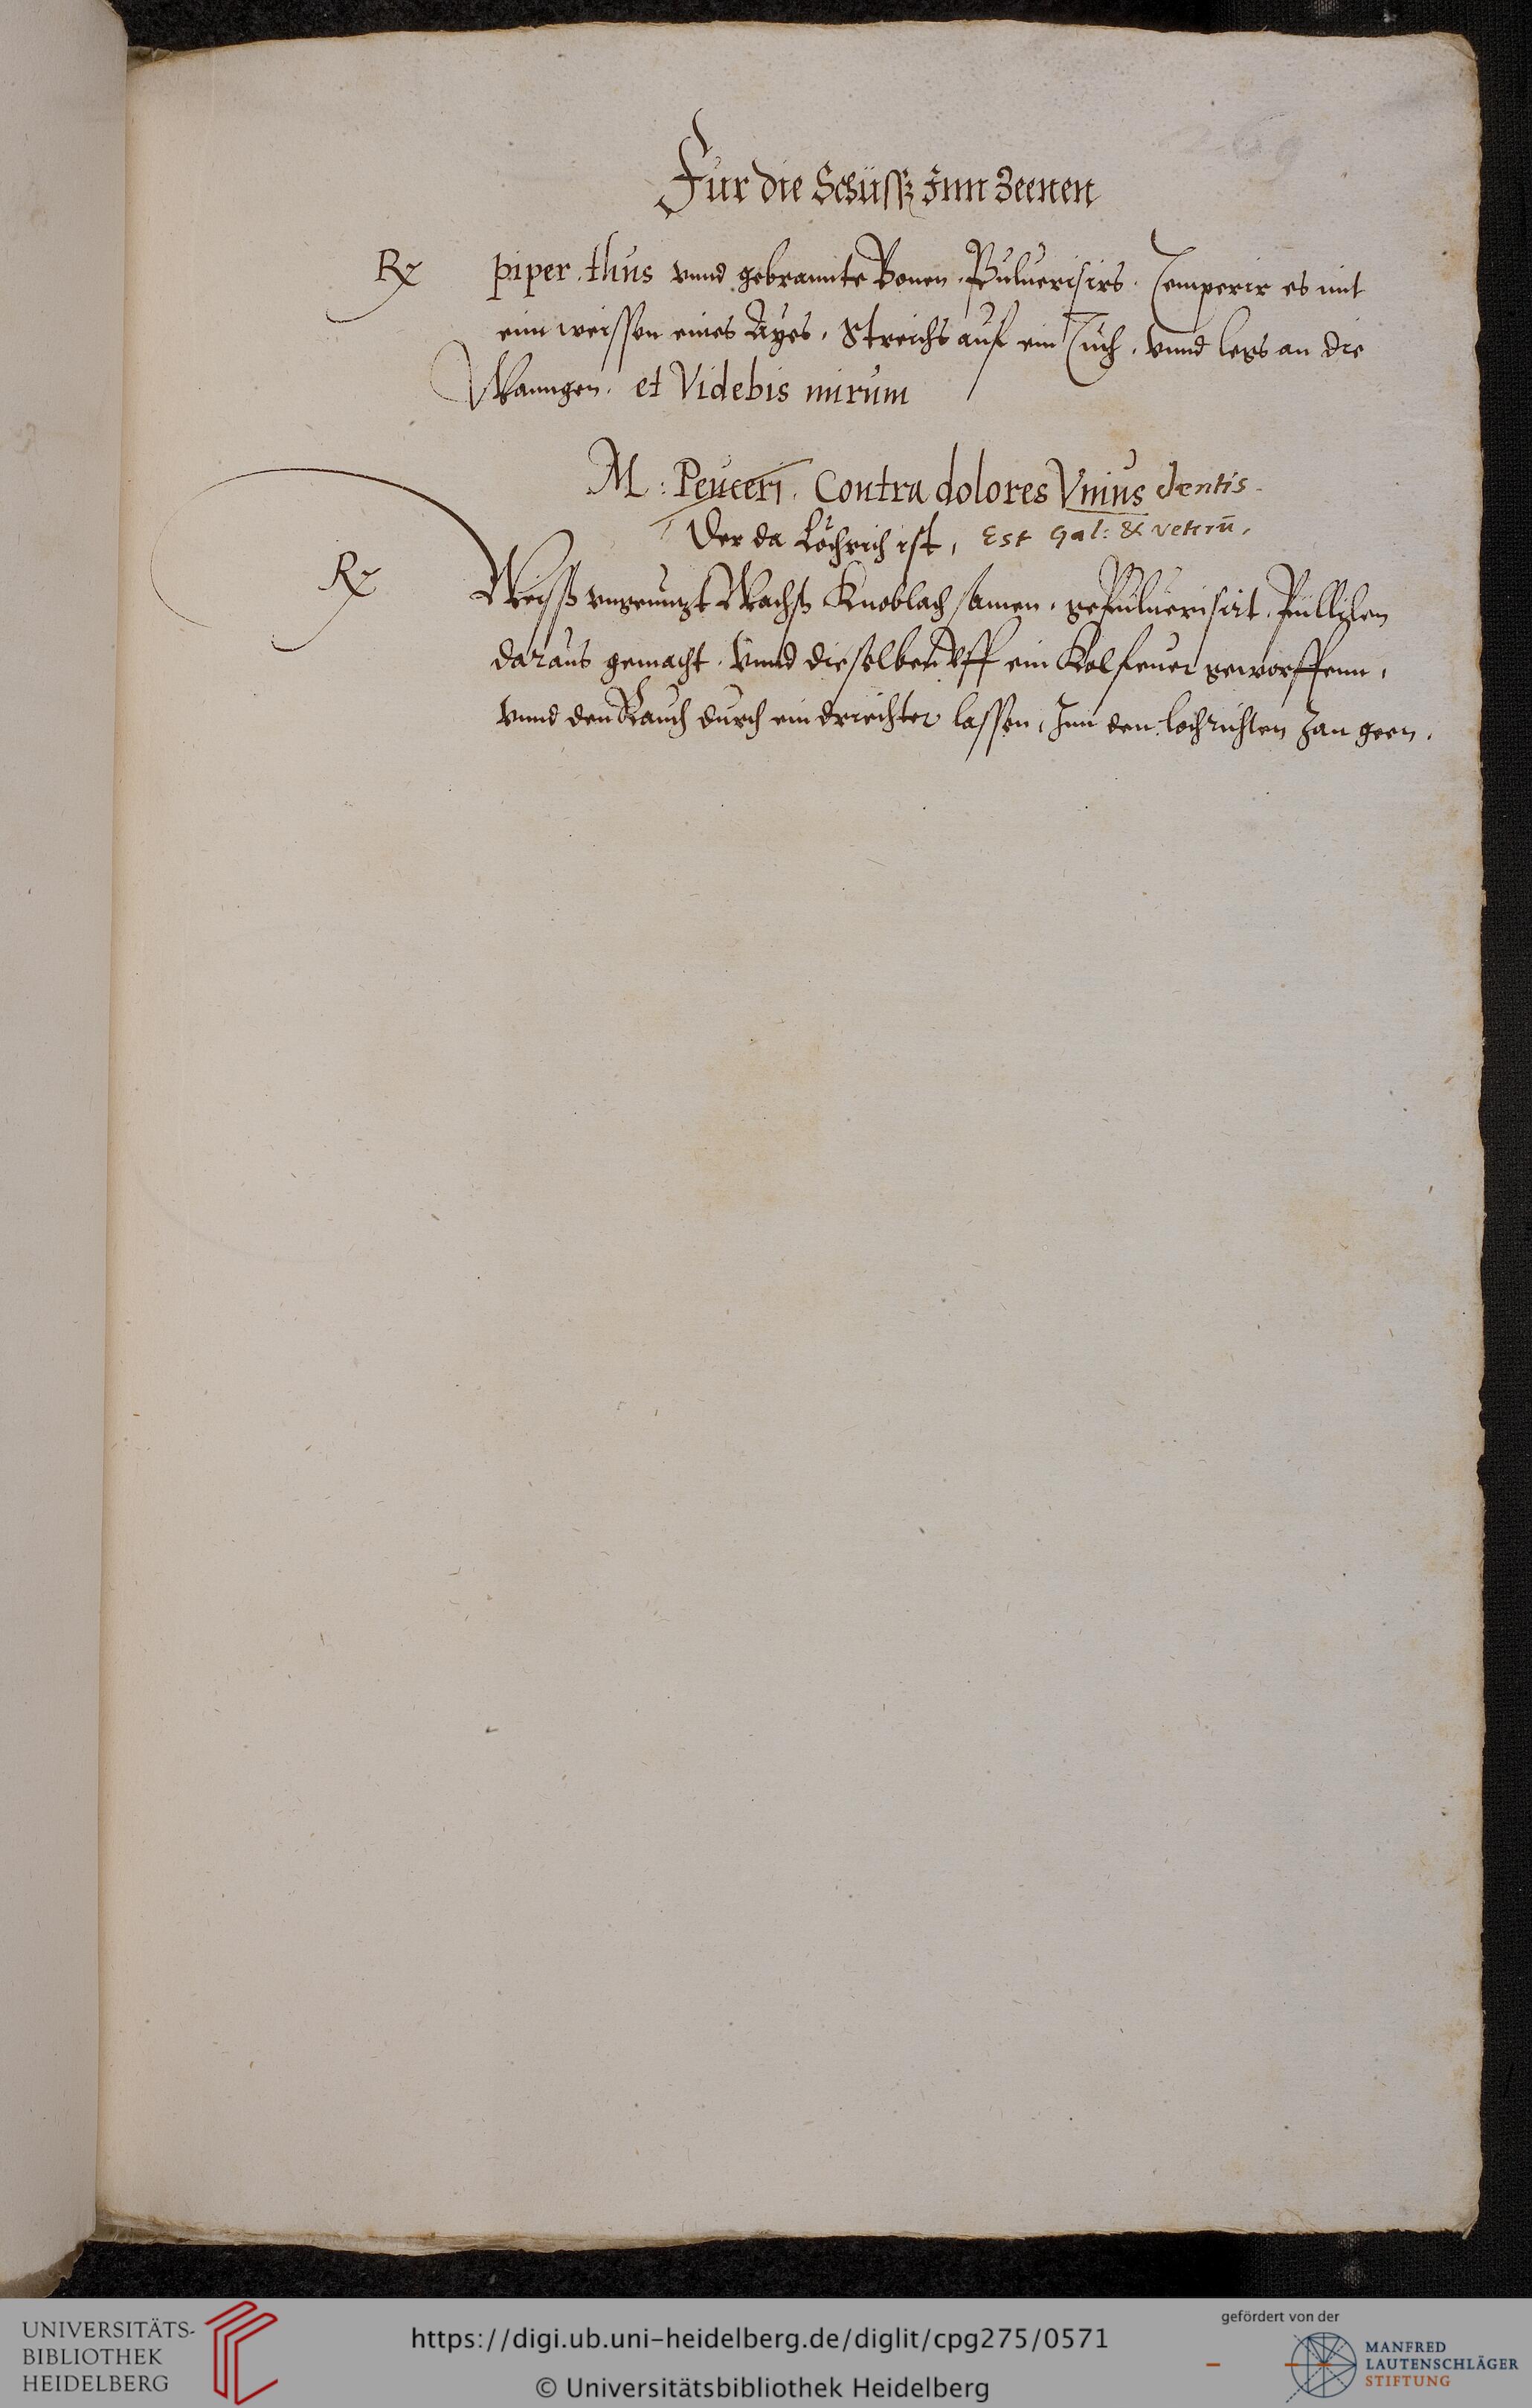 269
Fur die Schüsz Inn Zeenen
Rx piper. thus vnnd gebrannte Bonen. Puluerisirs. Temperir es mit
eim weissen eines Ayes. Streichs auf ein Tuch. vnnd legs an die
Wanngen. et Videbis mirum
M: Peuceri. Contra dolores Vnius dentis.
Der da Löchrich ist, Est Gal: & veterū.
Rx Weisß vngenuzt Wachß Knoblach samen. gepuluerisirt. Püllulen
daraus gemacht. Vnnd dieselben Vff ein Kolfeuer geworffenn,
vnnd den Rauch durch ein driechter lassen, Inn den lochrichten Zan geen.
UNIVERSITÄTS-
BIBLIOTHEK
HEIDELBERG
https://digi.ub.uni-heidelberg.de/diglit/cpg275/0571
© Universitätsbibliothek Heidelberg
gefördert von der
MANFRED
LAUTENSCHLÄGER
STIFTUNG